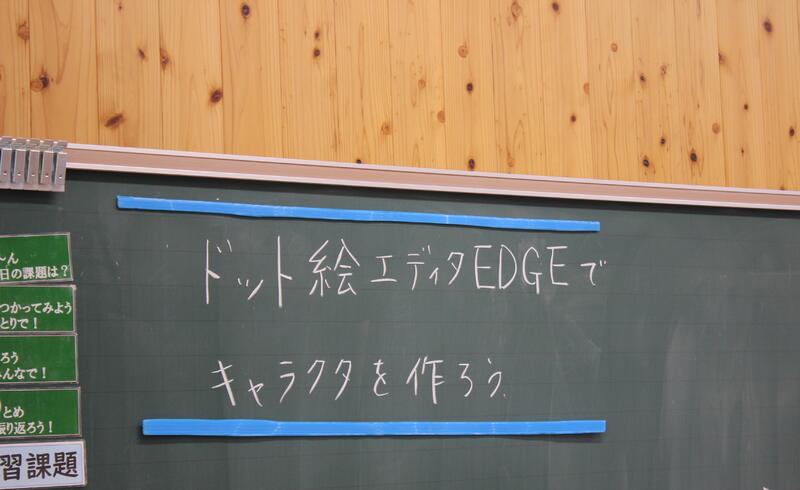 ドット絵エディタEDGEで
キャラクタを作ろう.
日の課題は?
つかってみよう
とりで!
ろう
んなで!
とめ
振り返ろう!
習課題